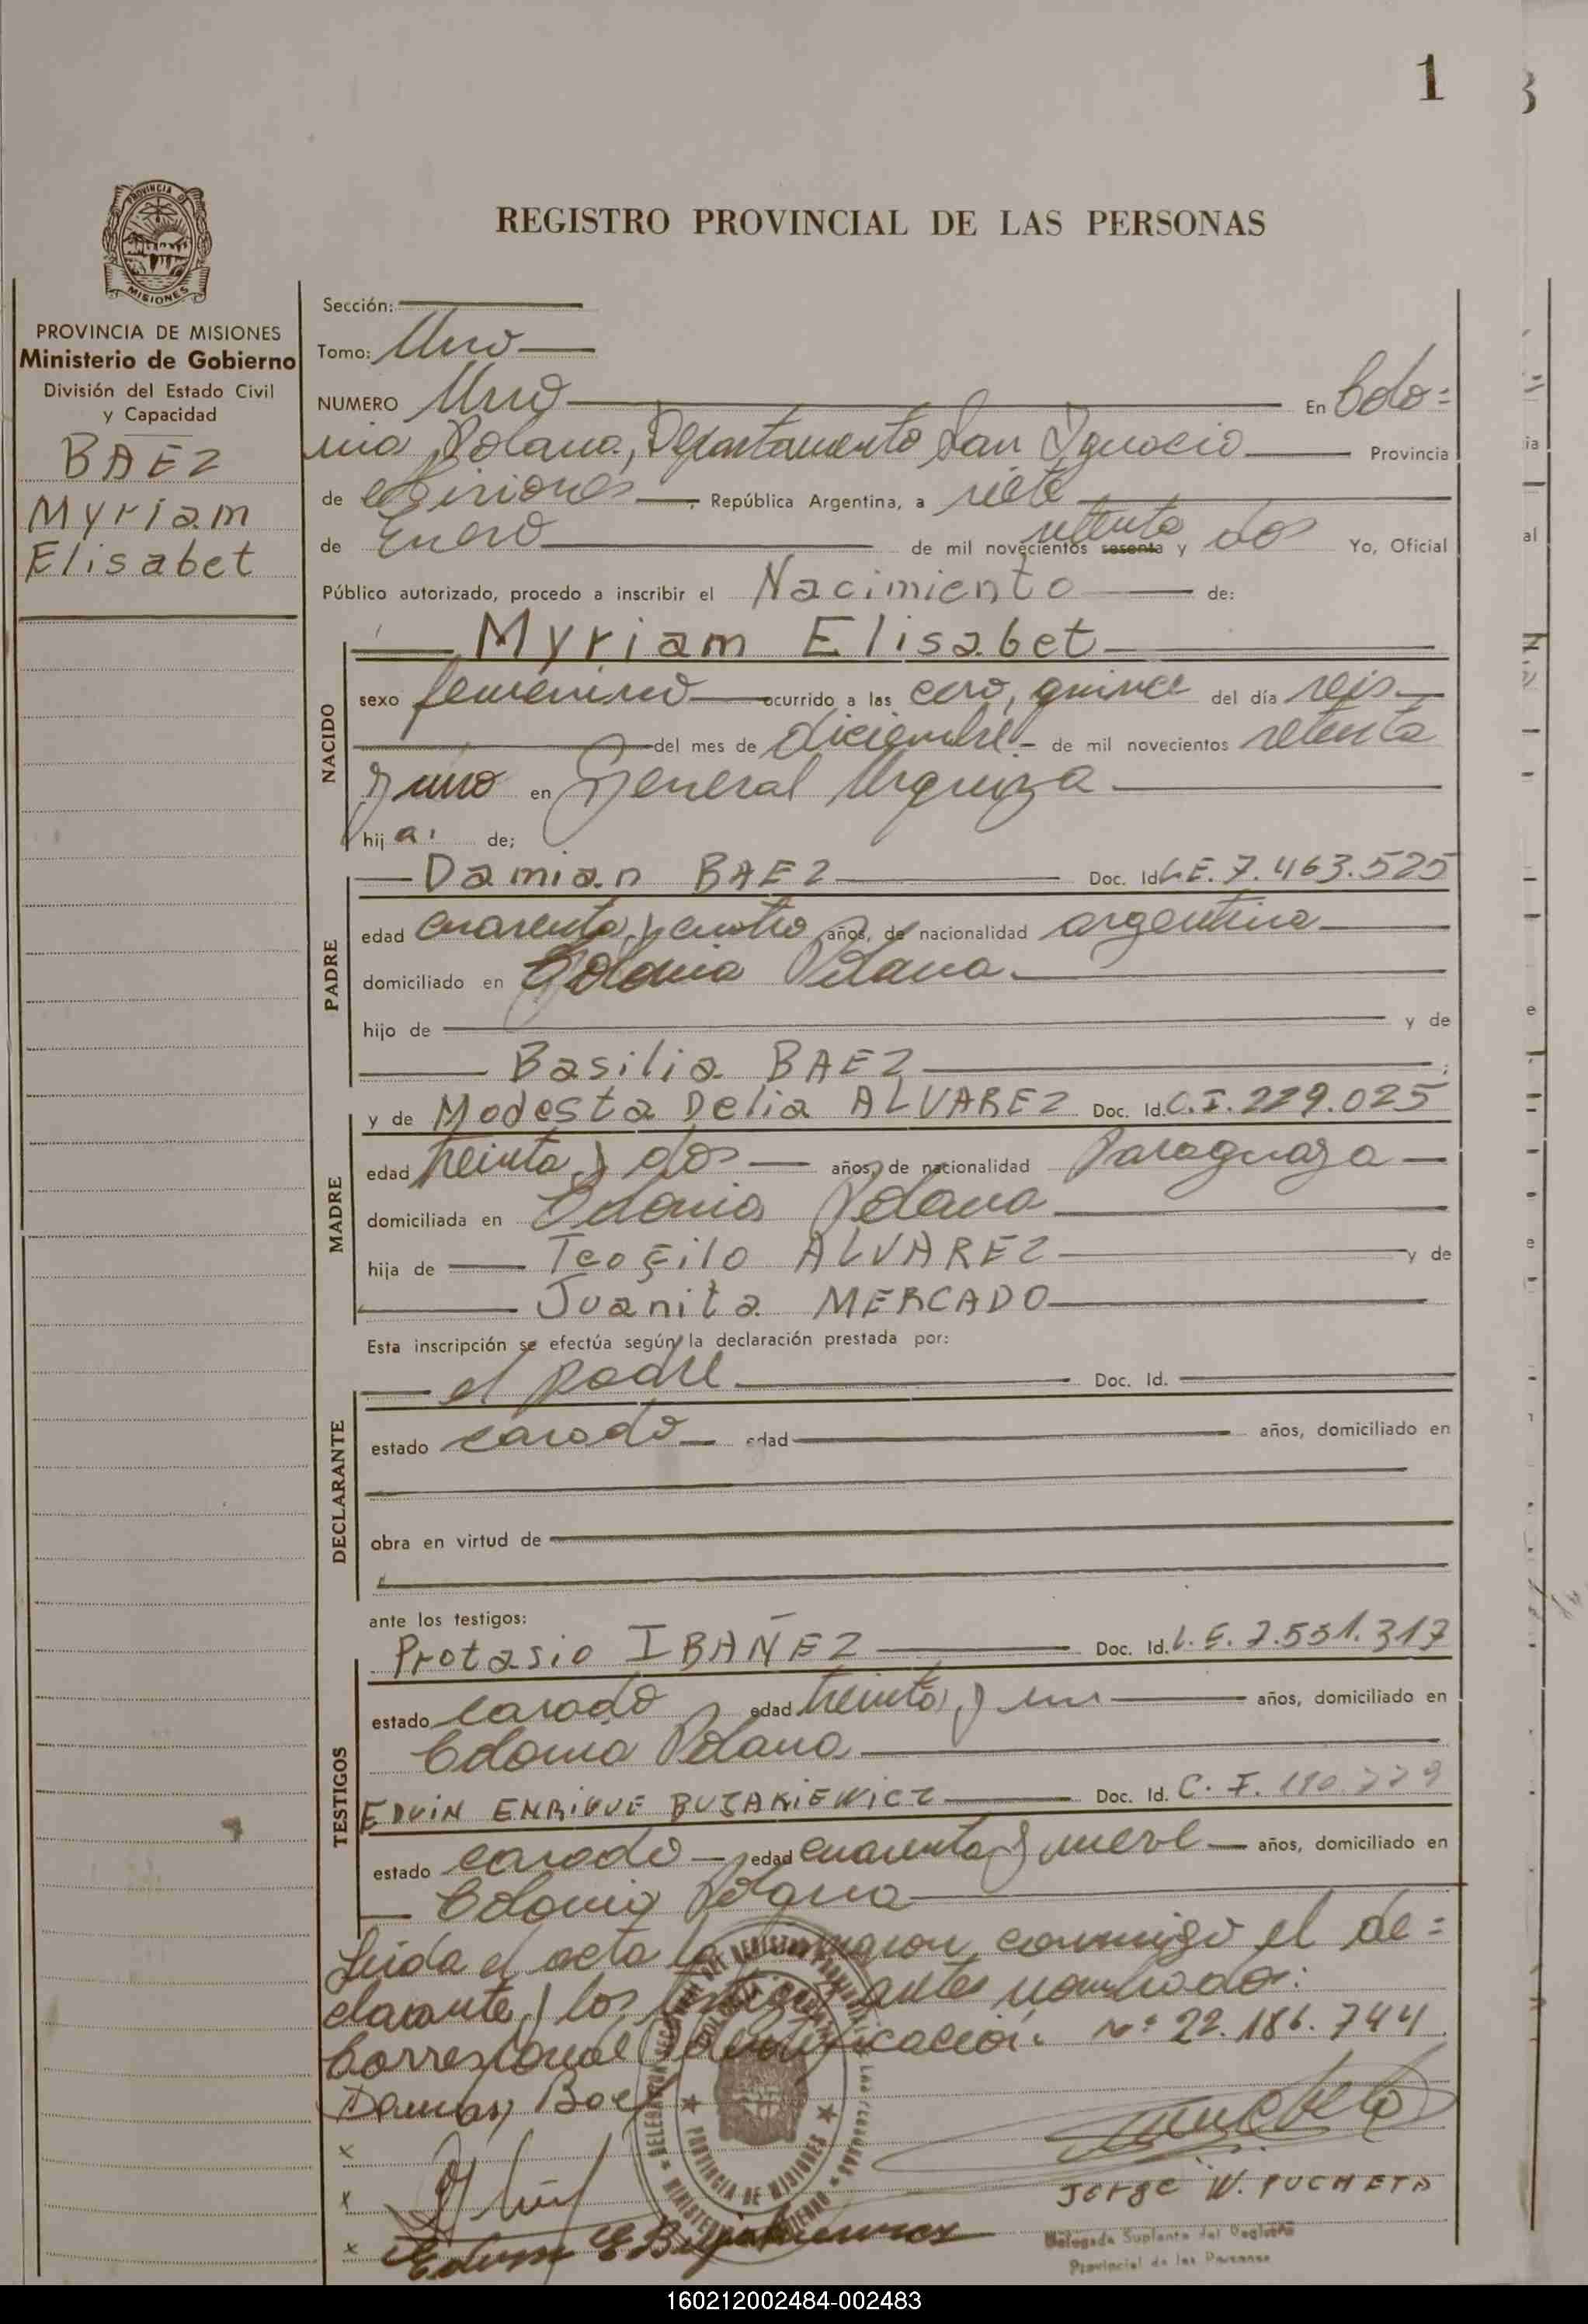 1
REGISTRO PROVINCIAL DE LAS PERSONAS
PROVINCIA DE MISIONES
Ministerio de Gobierno
División del Estado Civil
y Capacidad
BAEZ
Myriam
Elisabet
Sección:
Tomo: Uno
NUMERO Uno En Colo=
nia Polana, Departamento San Ignacio Provincia
de Misiones, República Argentina, a siete
de Enero de mil novecientos sesenta setenta y dos Yo, Oficial
Público autorizado, procedo a inscribir el Nacimiento de:
Myriam Elisabet
NACIDO
sexo femenino ocurrido a las cero, quince del día seis
del mes de diciembre de mil novecientos setenta
y uno en General Urquiza
hija de;
Damian BAEZ Doc. Id L.E. 7.463.525
PADRE
edad cuarenta y cuatro años, de nacionalidad argentina
domiciliado en Colonia Polana
hijo de y de
Basilia BAEZ;
y de Modesta Delia ALVAREZ Doc. Id. C.I. 229.025
MADRE
edad treinta y dos años, de nacionalidad Paraguaya
domiciliada en Colonia Polana
hija de Teofilo ALVAREZ y de
Juanita MERCADO
Esta inscripción se efectúa según la declaración prestada por:
el padre Doc. Id.
DECLARANTE
estado casado edad años, domiciliado en
obra en virtud de
ante los testigos:
Protasio IBAÑEZ Doc. Id. L.E. 7.551.317
TESTIGOS
estado casado edad treinta y un años, domiciliado en
Colonia Polana
EDUIN ENRIQUE BUJAKIEWICZ Doc. Id. C.I. 190.779
estado casado edad cuarenta y nueve años, domiciliado en
Colonia Polana
Leida el acta la firmaron conmigo el de=
clarante y los testigos antes nombrados:
Corresponde Identificación Nº 22.186.744
Damian Baez
x
x
x
JORGE W. PUCHETA
Delegado Suplente del Registro
Provincial de las Personas
PROVINCIA DE MISIONES
160212002484-002483